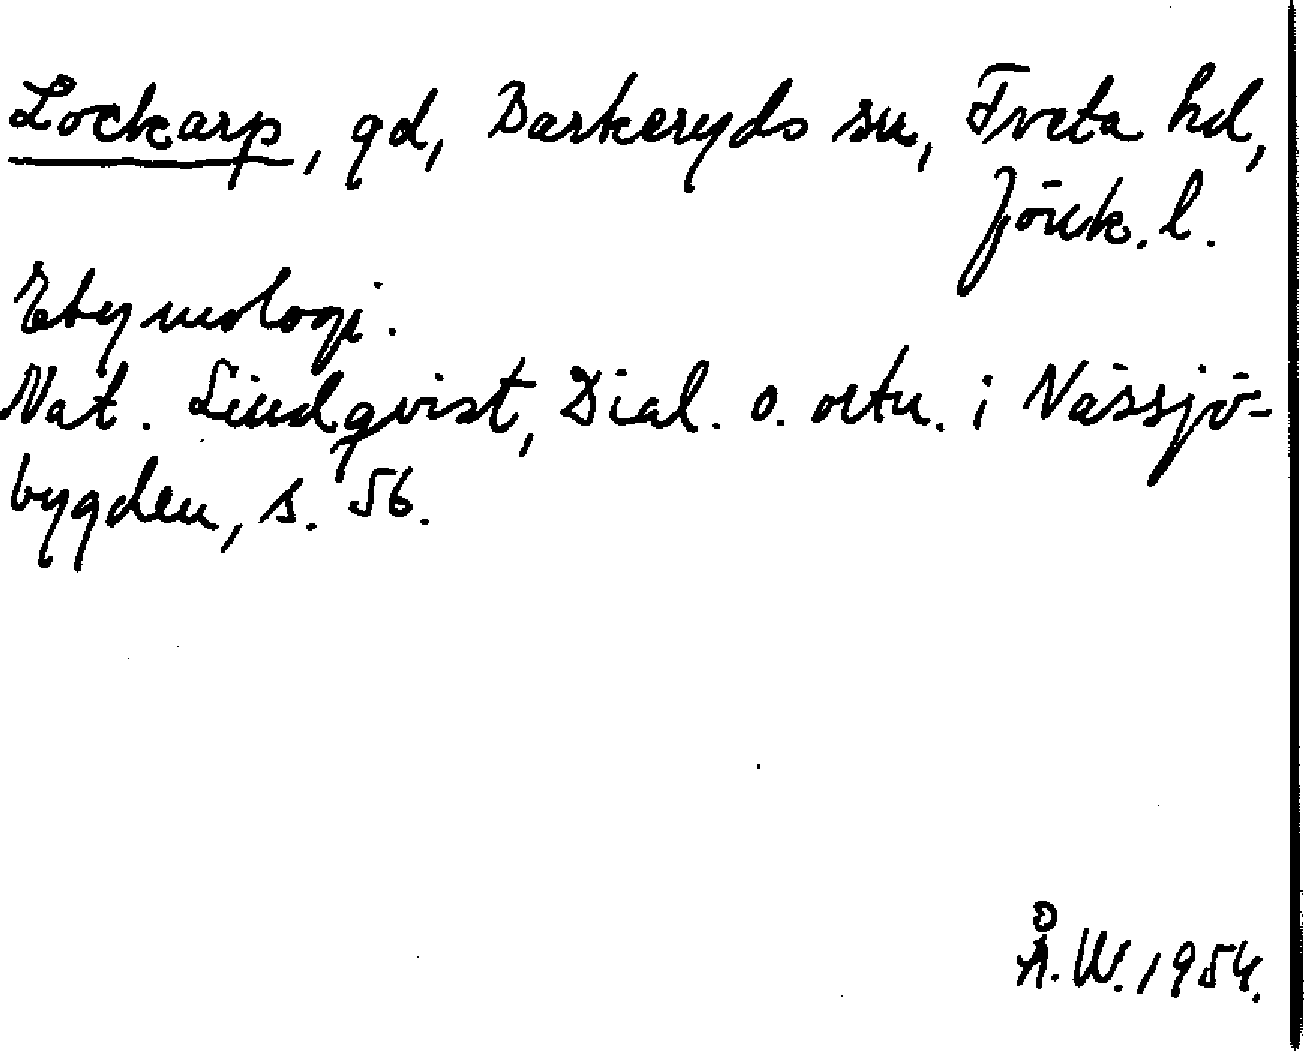 Lockarp, gd, Barkeryds sn, Tveta hd,
Jönk. l.
Etymologi.
Nat. Lindqvist, Dial. o. ortn. i Nässjö-
bygden, s. 56.
Å.W. 1954.